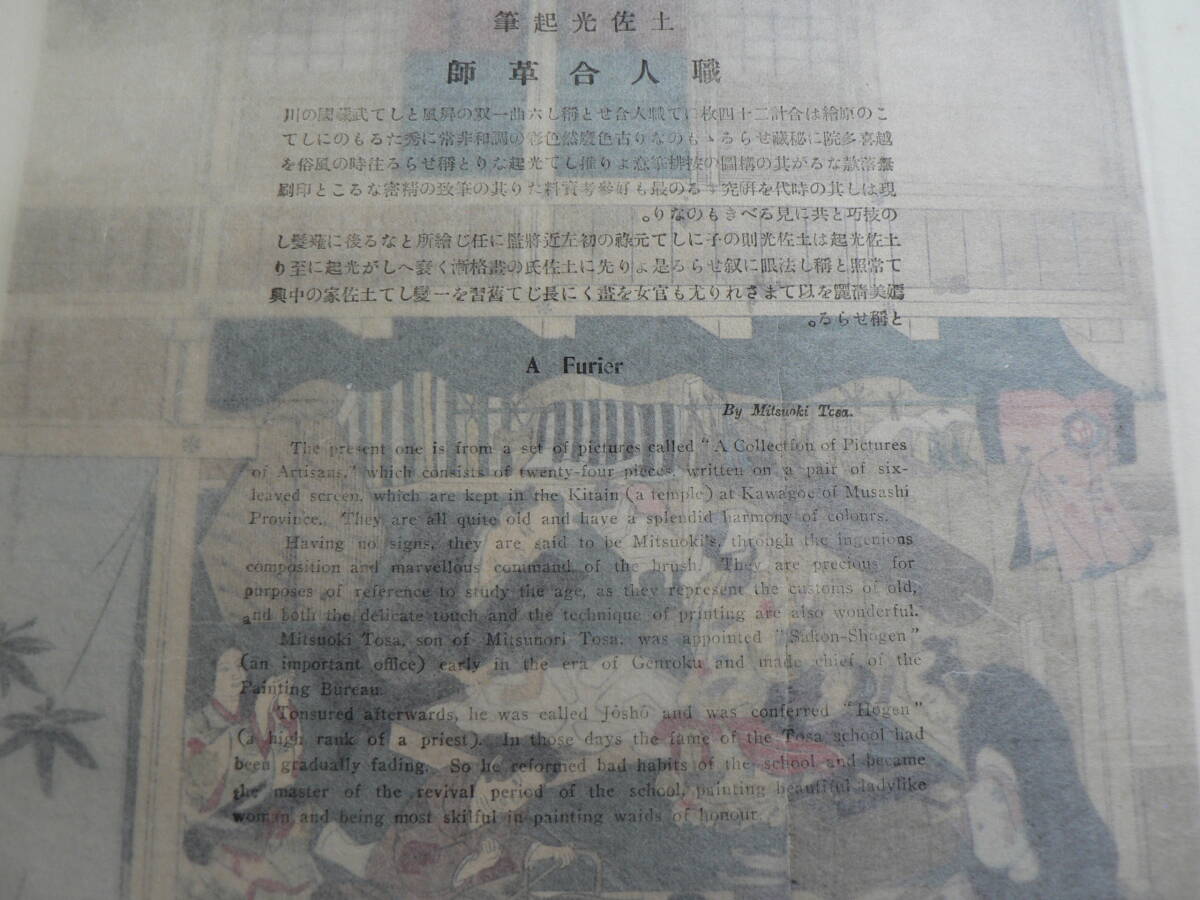 土佐光起筆
職人合革師
この原繪は合計二十四枚にて職人合せと稱し六曲一双の屏風として武藏國の川
越喜多院に秘藏せらるゝものなり古色蒼然色彩の調和非常に秀たるものにして
無落款なるが其の構圖の按排筆意より推して光起なりと稱せらる往時の風俗を
現はし其の時代を硏究するの最も好參考資料たり其の筆致の精密なること印刷
の技巧と共に見るべきものなり。
土佐光起は土佐光則の子にして元祿の初左近將監に任じ繪所となる後に薙髮し
て常照と稱し法眼に叙せらる是より先に土佐氏の畫格漸く衰へしが光起に至り
美淸麗を以てまされり尤も官女を畫くに長じて舊習を一變して土佐家の中興
と稱せらる。
A Furier
By Mitsuoki Tosa.
The present one is from a set of pictures called "A Collection of Pictures
of Artisans," which consists of twenty-four pieces, written on a pair of six-
leaved screen, which are kept in the Kitain (a temple) at Kawagoe of Musashi
Province. They are all quite old and have a splendid harmony of colours.
Having no signs, they are said to be Mitsuoki's, through the ingenious
composition and marvellous command of the brush. They are precious for
purposes of reference to study the age, as they represent the customs of old,
and both the delicate touch and the technique of printing are also wonderful.
Mitsuoki Tosa, son of Mitsunori Tosa, was appointed "Sakon-Shōgen"
(an important office) early in the era of Genroku and made chief of the
Painting Bureau.
Tonsured afterwards, he was called Jōshō and was conferred "Hōgen"
(a high rank of a priest). In those days the fame of the Tosa school had
been gradually fading. So he reformed bad habits of the school and became
the master of the revival period of the school, painting beautiful ladylike
woman and being most skilful in painting waids of honour.